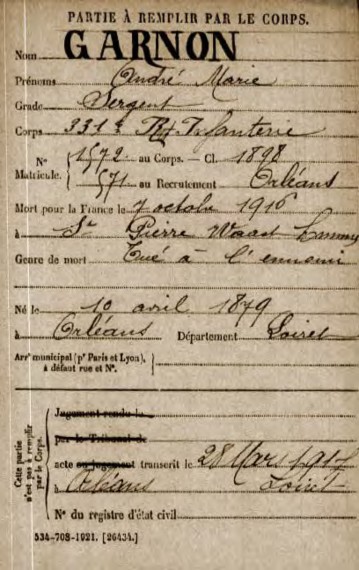 PARTIE À REMPLIR PAR LE CORPS.
Nom GARNON
Prénoms André Marie
Grade Sergent
Corps 331e Rgt Infanterie
N° 1572 au Corps. — Cl. 1898
Matricule. 571 au Recrutement Orléans
Mort pour la France le 7 octobre 1916
à St Pierre Waast Somme
Genre de mort Tué à l'ennemi
Né le 10 avril 1879
à Orléans Département Loiret
Arrt municipal (pr Paris et Lyon),
à défaut rue et N°.
Cette partie n'est pas à remplir par le Corps.
Jugement rendu le
par le Tribunal de
acte ou jugement transcrit le 28 Mars 1917
à Orléans Loiret
N° du registre d'état civil
534-708-1921. [26434.]